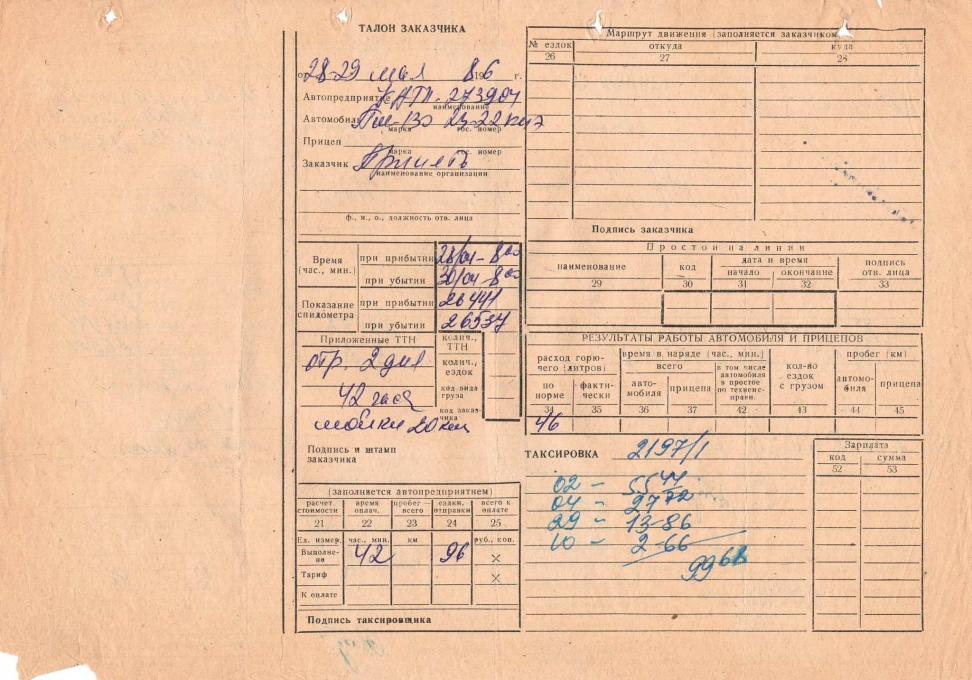 ТАЛОН ЗАКАЗЧИКА
от 28-29 мая 1986 г.
Автопредприятие КАТП-273904
наименование
Автомобиль 23-22
марка гос. номер
Прицеп
марка гос. номер
Заказчик Припять
наименование организации
ф., и., о., должность отв. лица
Время (час., мин.)
при прибытии 28/04-8 00
при убытии 30/04-8 00
Показание спидометра
при прибытии 26441
при убытии 26537
Приложенные ТТН
колич., ТТН
отр. 2 дня
колич., ездок
42 часа
код вида груза
код заказчика
мойки 20 км
Подпись и штамп
заказчика
(заполняется автопредприятием)
расчет стоимости
время оплач.
пробег — всего
ездки, отправки
всего к оплате
21 22 23 24 25
Ед. измер. час., мин. км руб., коп.
Выполнено 42 96 ×
Тариф ×
К оплате
Подпись таксировщика
Маршрут движения (заполняется заказчиком)
№ ездок откуда куда
26 27 28
Подпись заказчика
Простои на линии
наименование
код
дата и время
начало окончание
подпись отв. лица
29 30 31 32 33
РЕЗУЛЬТАТЫ РАБОТЫ АВТОМОБИЛЯ И ПРИЦЕПОВ
расход горючего (литров)
время в наряде (час., мин.)
всего
в том числе автомобиля в простое по техненсправн.
кол-во ездок с грузом
пробег (км)
по норме
фактически
автомобиля
прицепа
автомобиля
прицепа
34 35 36 37 42 43 44 45
46
ТАКСИРОВКА 2197/1
02 - 55 44
04 - 27 72
29 - 13-86
10 - 2-66
99 68
Зарплата
код сумма
52 53